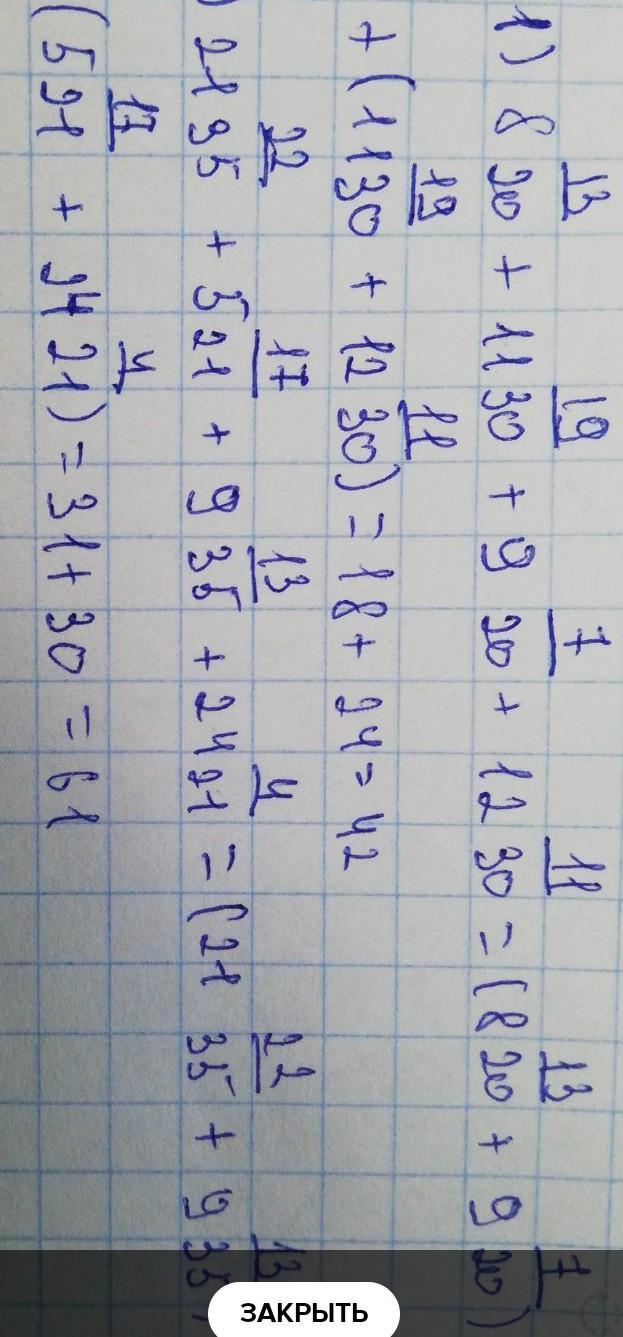 1) 8 13/20 + 11 19/30 + 9 7/20 + 12 11/30 = (8 13/20 + 9 7/20)
+ (11 19/30 + 12 11/30) = 18 + 24 = 42
) 21 22/35 + 5 17/21 + 9 13/35 + 24 4/21 = (21 22/35 + 9 13/35)
(5 17/21 + 24 4/21) = 31 + 30 = 61
ЗАКРЫТЬ